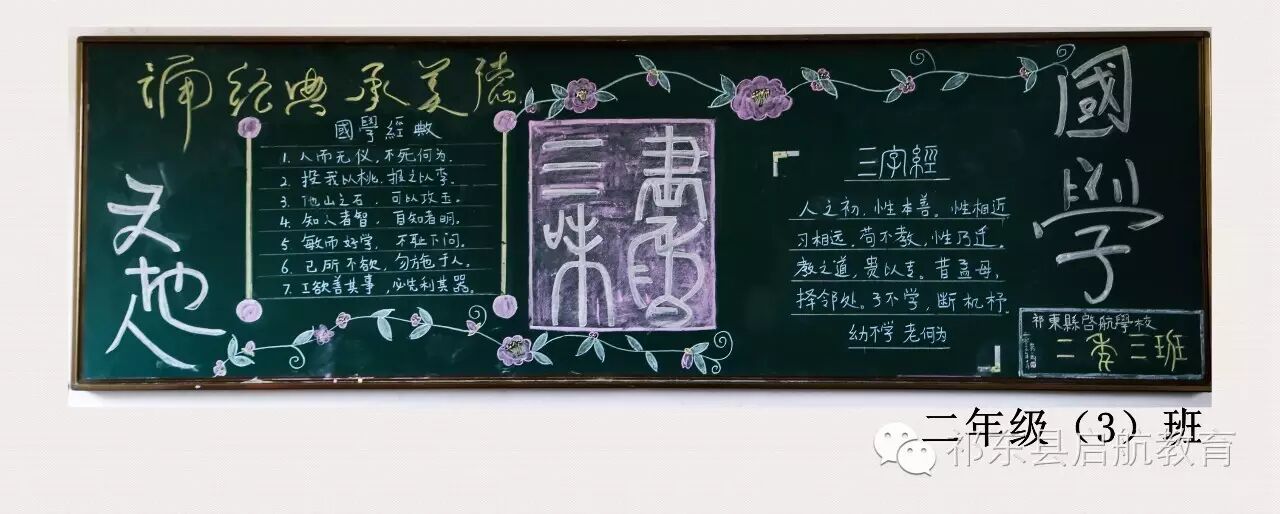 诵经典承美德
國學經典
1. 人而无仪,不死何为.
2. 投我以桃.报之以李.
3. 他山之石.可以攻玉.
4. 知人者智,自知者明.
5 敏而好学,不耻下问.
6. 己所不欲,勿施于人.
7. 工欲善其事,必先利其器.
天地人
三味
書屋
三字經
人之初.性本善。性相近
习相远.苟不教,性乃迁.
教之道,贵以专.昔孟母,
择邻处。子不学,断机杼.
幼不学 老何为
國學
祁東縣啓航學校
二年三班
二年级（3）班
祁东县启航教育